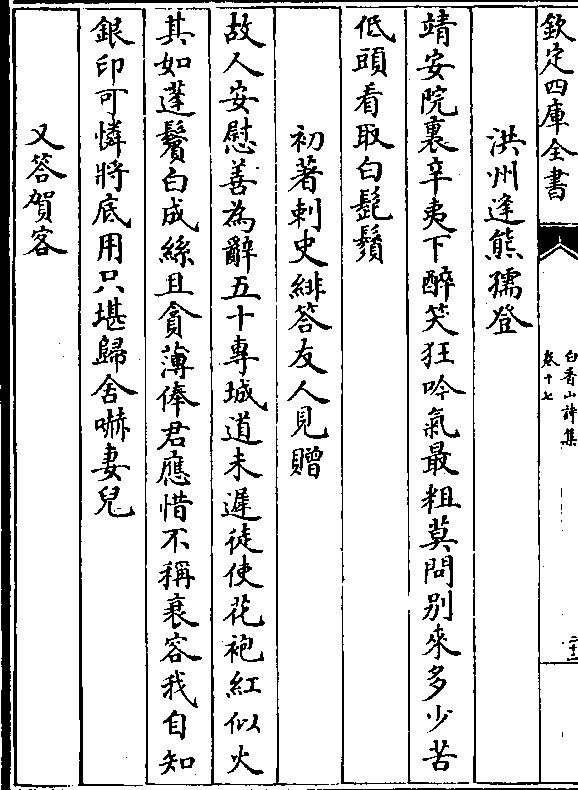 欽定四庫全書
白香山詩集
卷十七
二十二
洪州逢熊孺登
靖安院裏辛夷下醉笑狂吟氣最粗莫問別來多少苦
低頭看取白髭鬚
初著刺史緋答友人見贈
故人安慰善為辭五十專城道未遲徒使花袍紅似火
其如蓬鬢白成絲且貪薄俸君應惜不稱衰容我自知
銀印可憐將底用只堪歸舍嚇妻兒
又答賀客